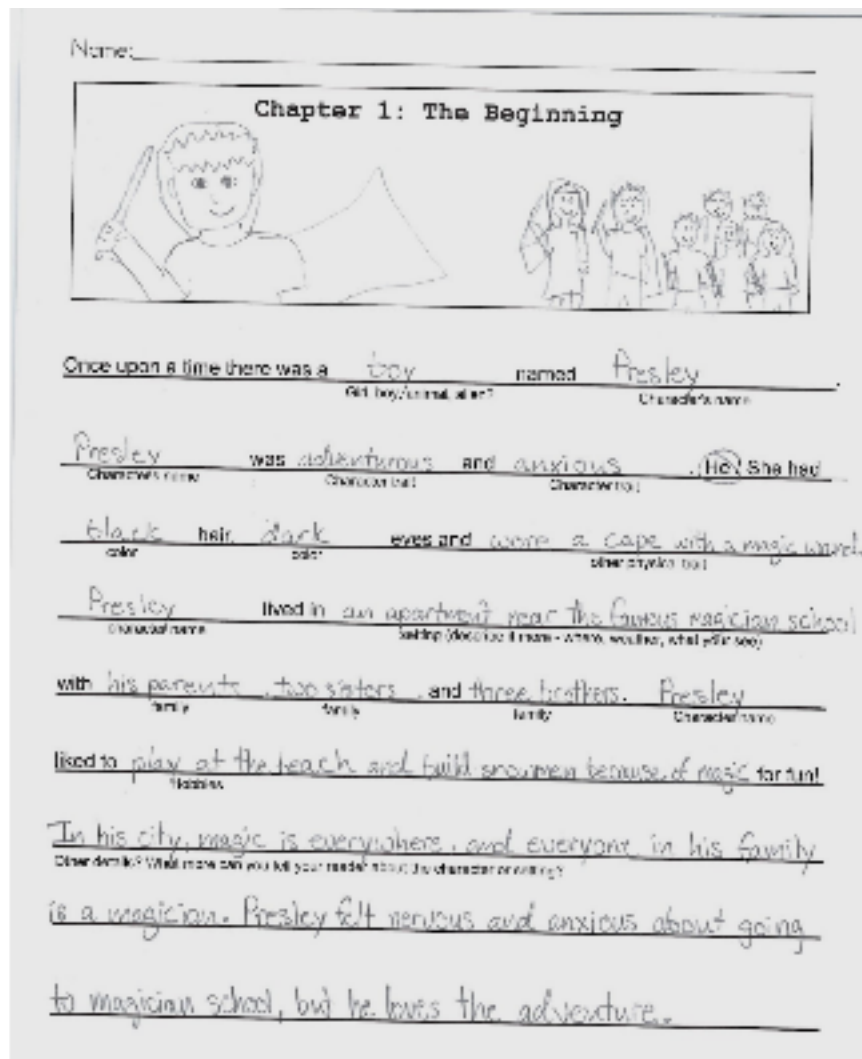 Name:
Chapter 1: The Beginning
Once upon a time there was a boy named Presley.
Girl, boy, animal, alien? Character's name
Presley was adventurous and anxious. He/ She had
Character's name Character trait Character trait
black hair, dark eyes and wore a cape with a magic wand.
color color other physical trait
Presley lived in an apartment near the famous magician school
character name setting (describe it more - where, weather, what your see)
with his parents, two sisters, and three brothers. Presley
family family family Character name
liked to play at the beach and build snowmen because of magic for fun!
Hobbies
In his city, magic is everywhere, and everyone in his family
Other details? What more can you tell your reader about the character or setting?
is a magician. Presley felt nervous and anxious about going
to magician school, but he loves the adventure.